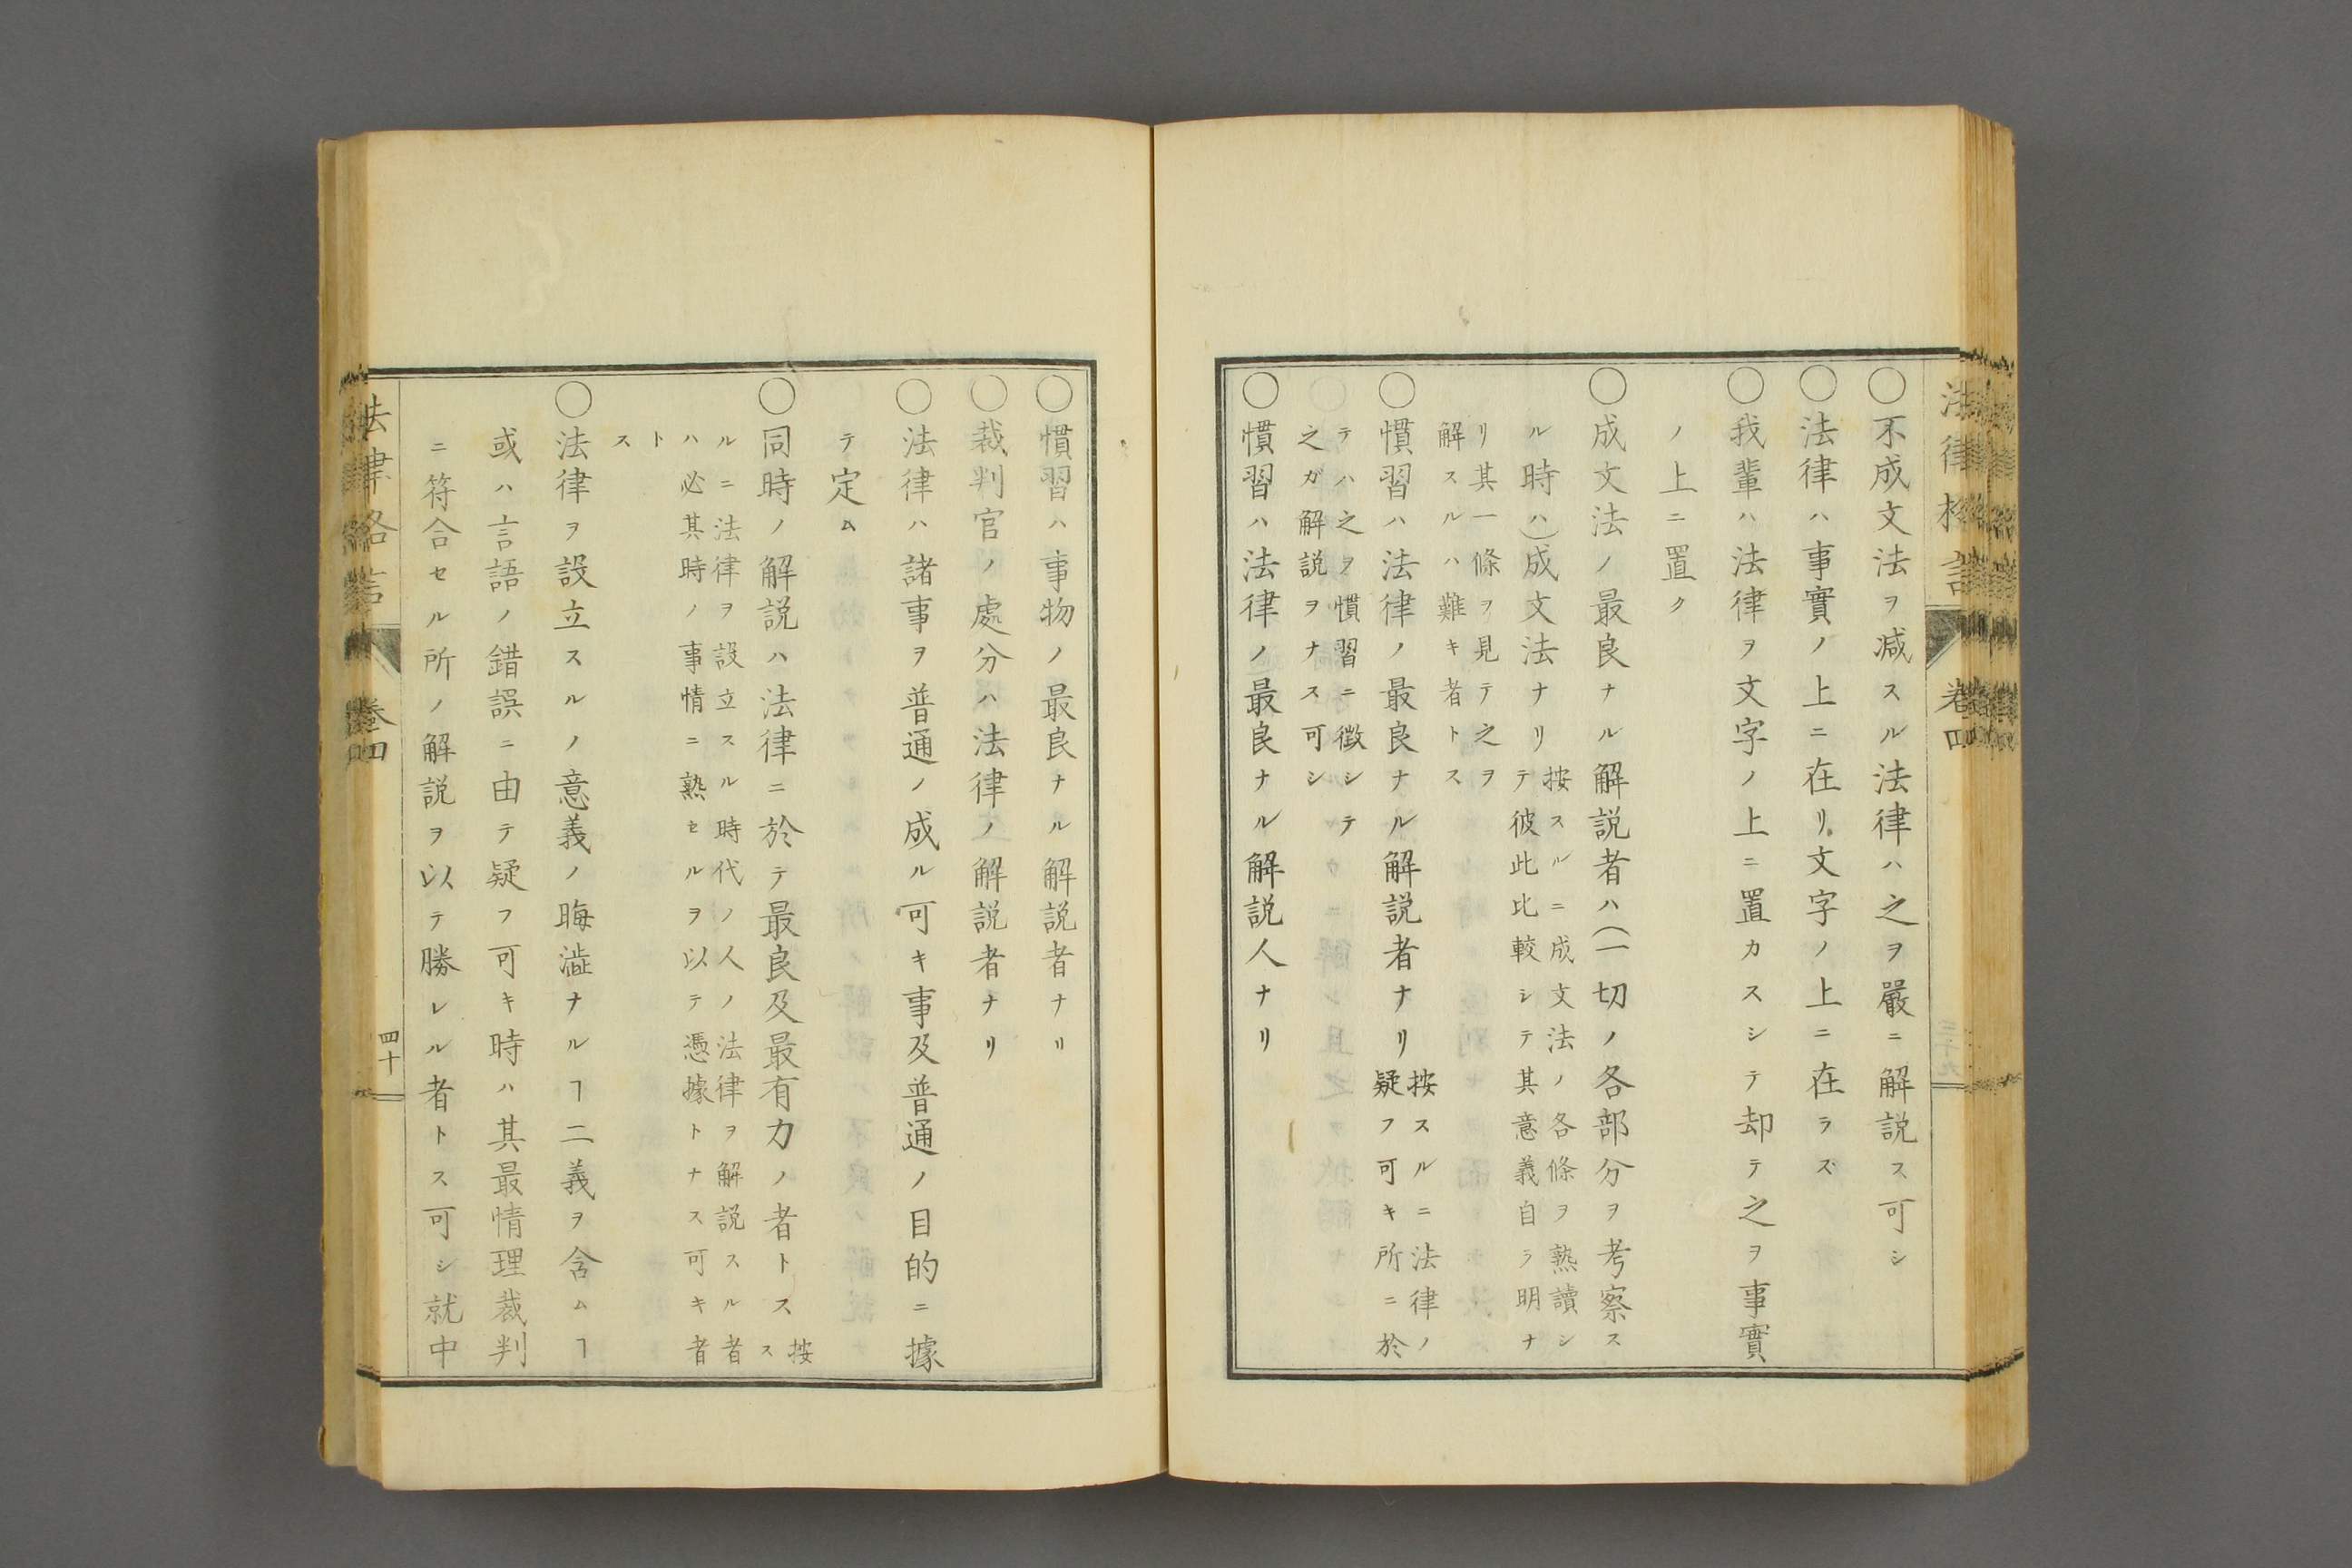 ○不成文法ヲ減スル法律ハ之ヲ嚴ニ解説ス可シ
○法律ハ事實ノ上ニ在リ文字ノ上ニ在ラズ
○我輩ハ法律ヲ文字ノ上ニ置カスシテ却テ之ヲ事實
ノ上ニ置ク
○成文法ノ最良ナル解説者ハ(一切ノ各部分ヲ考察ス
ル時ハ)成文法ナリ
按スルニ成文法ノ各條ヲ熟讀シ
テ彼此比較シテ其意義自ラ明ナ
リ其一條ヲ見テ之ヲ
解スルハ難キ者トス
○慣習ハ法律ノ最良ナル解説者ナリ
按スルニ法律ノ
疑フ可キ所ニ於
テハ之ヲ慣習ニ徴シテ
之ガ解説ヲナス可シ
○慣習ハ法律ノ最良ナル解説人ナリ
法律格言
卷四
三十九
○慣習ハ事物ノ最良ナル解説者ナリ
○裁判官ノ處分ハ法律ノ解説者ナリ
○法律ハ諸事ヲ普通ノ成ル可キ事及普通ノ目的ニ據
テ定ム
○同時ノ解説ハ法律ニ於テ最良及最有力ノ者トス
按
ス
ルニ法律ヲ設立スル時代ノ人ノ法律ヲ解説スル者
ハ必其時ノ事情ニ熟セルヲ以テ憑據トナス可キ者
ト
ス
○法律ヲ設立スルノ意義ノ晦澁ナルヿ二義ヲ含ムヿ
或ハ言語ノ錯誤ニ由テ疑フ可キ時ハ其最情理裁判
ニ符合セル所ノ解説ヲ以テ勝レル者トス可シ就中
法律格言
卷四
四十